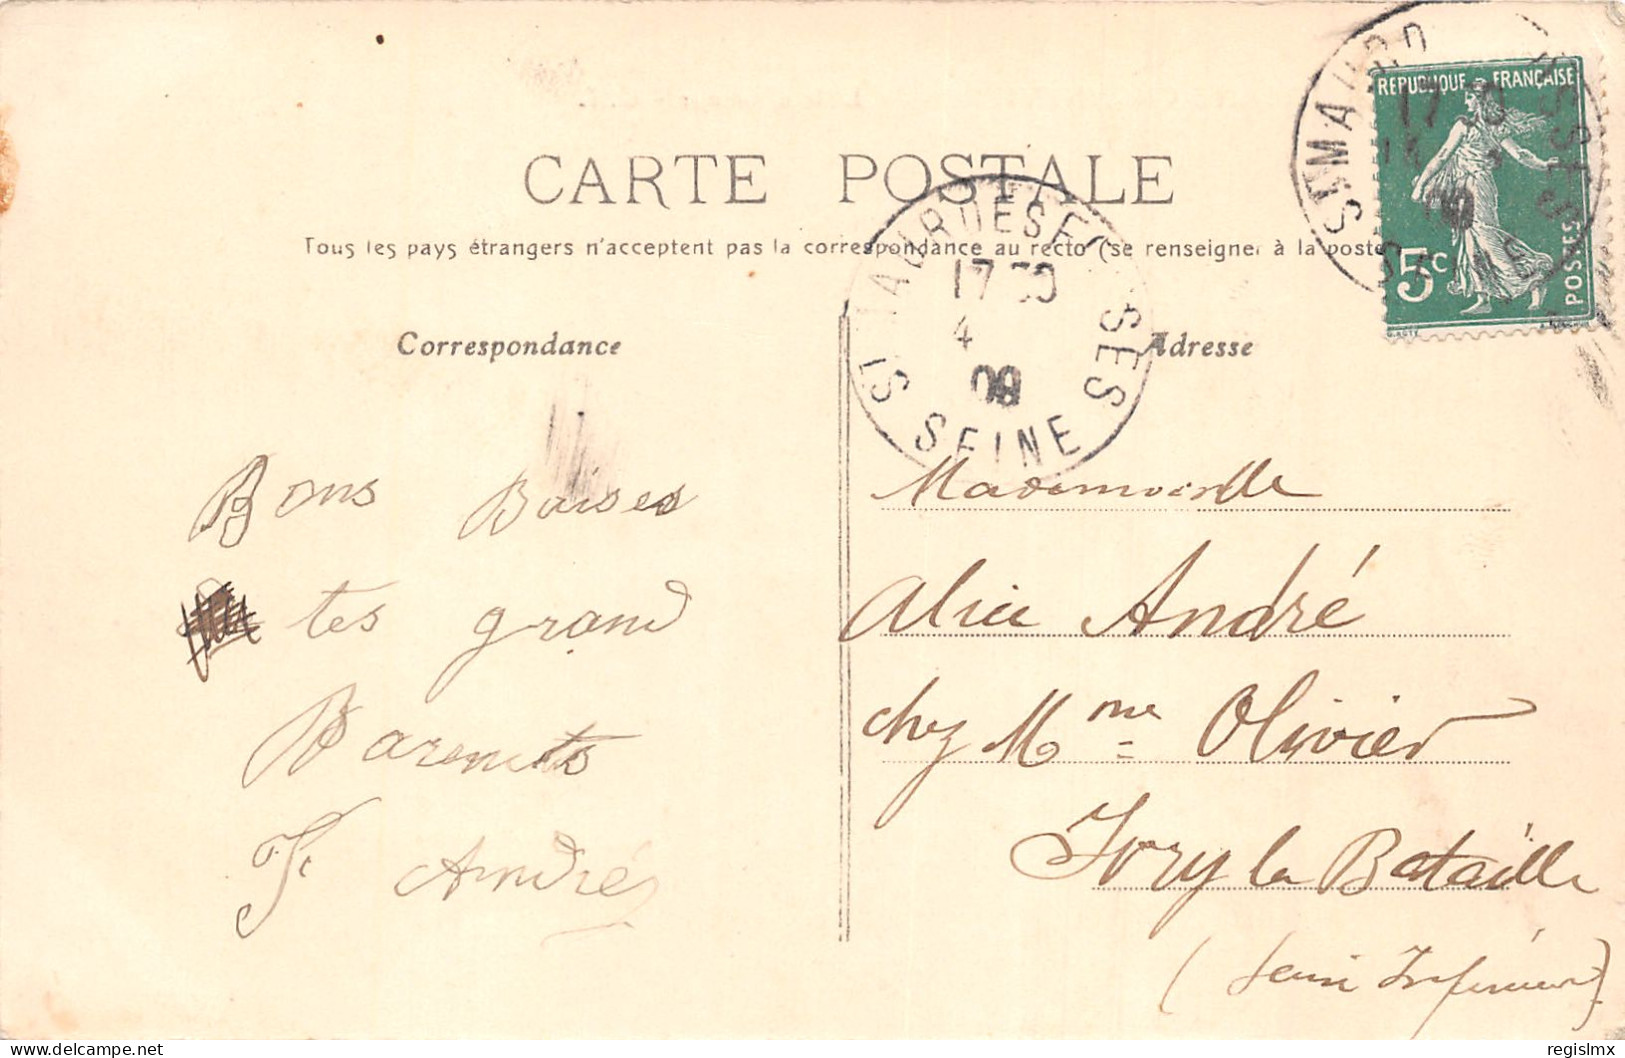 CARTE POSTALE
Tous les pays étrangers n'acceptent pas la correspondance au recto (se renseigner à la poste
Correspondance
Adresse
REPUBLIQUE FRANÇAISE
POSTES
5c
17 30
4
09
SEINE
Bons Baises
tes grand
Parents
F. André
Mademoiselle
Alice André
chez Mme Olivier
Ivry la Bataille
(Seine Inférieure)
delcampe.net
regislmx